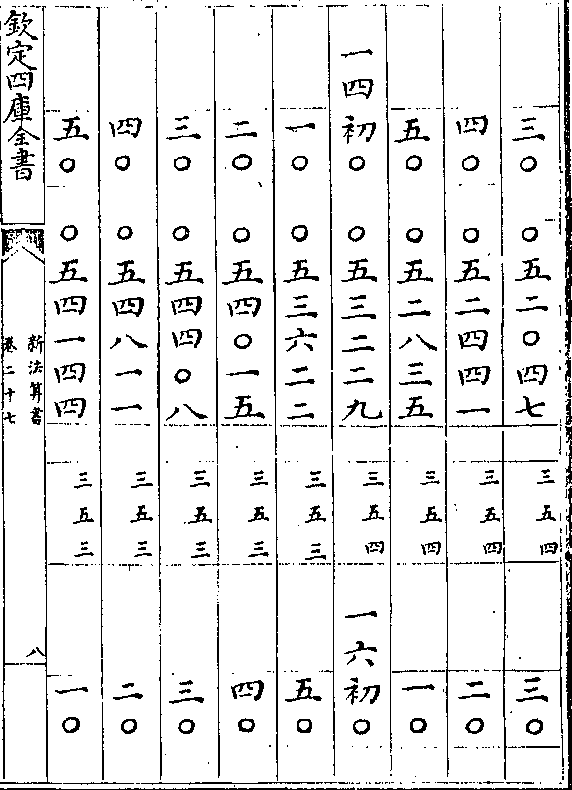 三〇 〇五二〇四七 三五四 三〇
四〇 〇五二四四一 三五四 二〇
五〇 〇五二八三五 三五四 一〇
一四初〇 〇五三二二九 三五四 一六初〇
一〇 〇五三六二二 三五三 五〇
二〇 〇五四〇一五 三五三 四〇
三〇 〇五四四〇八 三五三 三〇
四〇 〇五四八一一 三五三 二〇
五〇 〇五四一四四 三五三 一〇
欽定四庫全書
新法算書
卷二十七
八